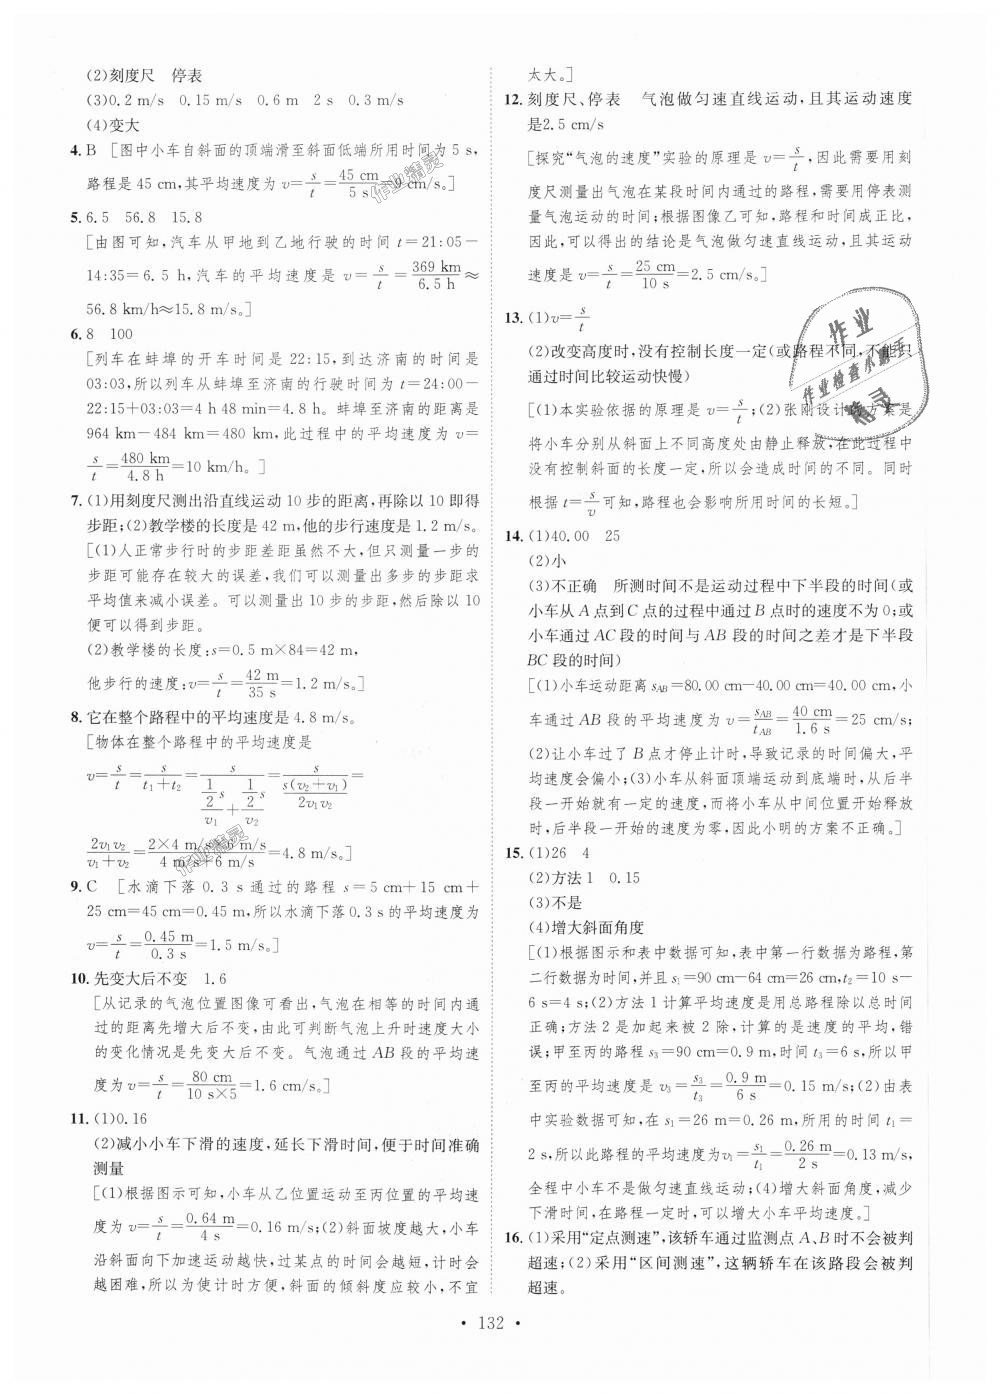 (2)刻度尺　停表
(3)0.2 m/s　0.15 m/s　0.6 m　2 s　0.3 m/s
(4)变大
4. B　[图中小车自斜面的顶端滑至斜面低端所用时间为 5 s，
路程是 45 cm，其平均速度为 v=s/t=45 cm/5 s=9 cm/s。]
5. 6.5　56.8　15.8
[由图可知，汽车从甲地到乙地行驶的时间 t=21:05-
14:35=6.5 h，汽车的平均速度是 v=s/t=369 km/6.5 h≈
56.8 km/h≈15.8 m/s。]
6. 8　100
[列车在蚌埠的开车时间是 22:15，到达济南的时间是
03:03，所以列车从蚌埠至济南的行驶时间 t=24:00-
22:15+03:03=4 h 48 min=4.8 h。蚌埠至济南的距离是
964 km-484 km=480 km，此过程中的平均速度为 v=
s/t=480 km/4.8 h=10 km/h。]
7. (1)用刻度尺测出沿直线运动 10 步的距离，再除以 10 即得
步距；(2)教学楼的长度是 42 m，他的步行速度是 1.2 m/s。
[(1)人正常步行时的步距差距虽然不大，但只测量一步的
步距可能存在较大的误差，我们可以测量出多步的步距求
平均值来减小误差。可以测量出 10 步的距离，然后除以 10
便可以得到步距。
(2)教学楼的长度：s=0.5 m×84=42 m，
他步行的速度：v=s/t=42 m/35 s=1.2 m/s。]
8. 它在整个路程中的平均速度是 4.8 m/s。
[物体在整个路程中的平均速度是
v=s/t=s/(t₁+t₂)=s/((1/2 s)/v₁+(1/2 s)/v₂)=s/(s(v₂+v₁)/2v₁v₂)=
2v₁v₂/(v₁+v₂)=2×4 m/s×6 m/s/(4 m/s+6 m/s)=4.8 m/s。]
9. C　[水滴下落 0.3 s 通过的路程 s=5 cm+15 cm+
25 cm=45 cm=0.45 m，所以水滴下落 0.3 s 的平均速度为
v=s/t=0.45 m/0.3 s=1.5 m/s。]
10. 先变大后不变　1.6
[从记录的气泡位置图像可看出，气泡在相等的时间内通
过的距离先增大后不变，由此可判断气泡上升时速度大小
的变化情况是先变大后不变。气泡通过 AB 段的平均速
度为 v=s/t=80 cm/(10 s×5)=1.6 cm/s。]
11. (1)0.16
(2)减小小车下滑的速度，延长下滑时间，便于时间准确
测量
[(1)根据图示可知，小车从乙位置运动至丙位置的平均速
度为 v=s/t=0.64 m/4 s=0.16 m/s；(2)斜面坡度越大，小车
沿斜面向下加速运动越快，过某点的时间会越短，计时会
越困难，所以为使计时方便，斜面的倾斜度应较小，不宜
太大。]
12. 刻度尺、停表　气泡做匀速直线运动，且其运动速度
是2.5 cm/s
[探究“气泡的速度”实验的原理是 v=s/t，因此需要用刻
度尺测量出气泡在某段时间内通过的路程，需要用停表测
量气泡运动的时间；根据图像乙可知，路程和时间成正比，
因此，可以得出的结论是气泡做匀速直线运动，且其运动
速度是 v=s/t=25 cm/10 s=2.5 cm/s。]
13. (1)v=s/t
(2)改变高度时，没有控制长度一定(或路程不同，不能只
通过时间比较运动快慢)
[(1)本实验依据的原理是 v=s/t；(2)张刚设计的方案是
将小车分别从斜面上不同高度处由静止释放，在此过程中
没有控制斜面的长度一定，所以会造成时间的不同。同时
根据 t=s/v 可知，路程也会影响所用时间的长短。]
14. (1)40.00　25
(2)小
(3)不正确　所测时间不是运动过程中下半段的时间(或
小车从 A 点到 C 点的过程中通过 B 点时的速度不为 0；或
小车通过 AC 段的时间与 AB 段的时间之差才是下半段
BC 段的时间)
[(1)小车运动距离 sAB=80.00 cm-40.00 cm=40 cm，小
车通过 AB 段的平均速度为 v=sAB/tAB=40 cm/1.6 s=25 cm/s；
(2)让小车过了 B 点才停止计时，导致记录的时间偏大，平
均速度会偏小；(3)小车从斜面顶端运动到底端时，从后半
段一开始就有一定的速度，而将小车从中间位置开始释放
时，后半段一开始的速度为零，因此小明的方案不正确。]
15. (1)26　4
(2)方法 1　0.15
(3)不是
(4)增大斜面角度
[(1)根据图示和表中数据可知，表中第一行数据为路程，第
二行数据为时间，并且 s₁=90 cm-64 cm=26 cm，t₂=10 s-
6 s=4 s；(2)方法 1 计算平均速度是用总路程除以总时间
正确；方法 2 是加起来被 2 除，计算的是速度的平均，错
误；甲至丙的路程 s₃=90 cm=0.9 m，时间 t₃=6 s，所以甲
至丙的平均速度是 v₃=s₃/t₃=0.9 m/6 s=0.15 m/s；(2)由表
中实验数据可知，在 s₁=26 m=0.26 m，所用的时间 t₁=
2 s，所以此路程的平均速度为v₁=s₁/t₁=0.26 m/2 s=0.13 m/s，
全程中小车不是做匀速直线运动；(4)增大斜面角度，减少
下滑时间，在路程一定时，可以增大小车平均速度。]
16. (1)采用“定点测速”，该轿车通过监测点 A、B 时不会被判
超速；(2)采用“区间测速”，这辆轿车在该路段会被判
超速。
• 132 •
作业精灵
作业精灵
作业
作业检查小帮手
精灵